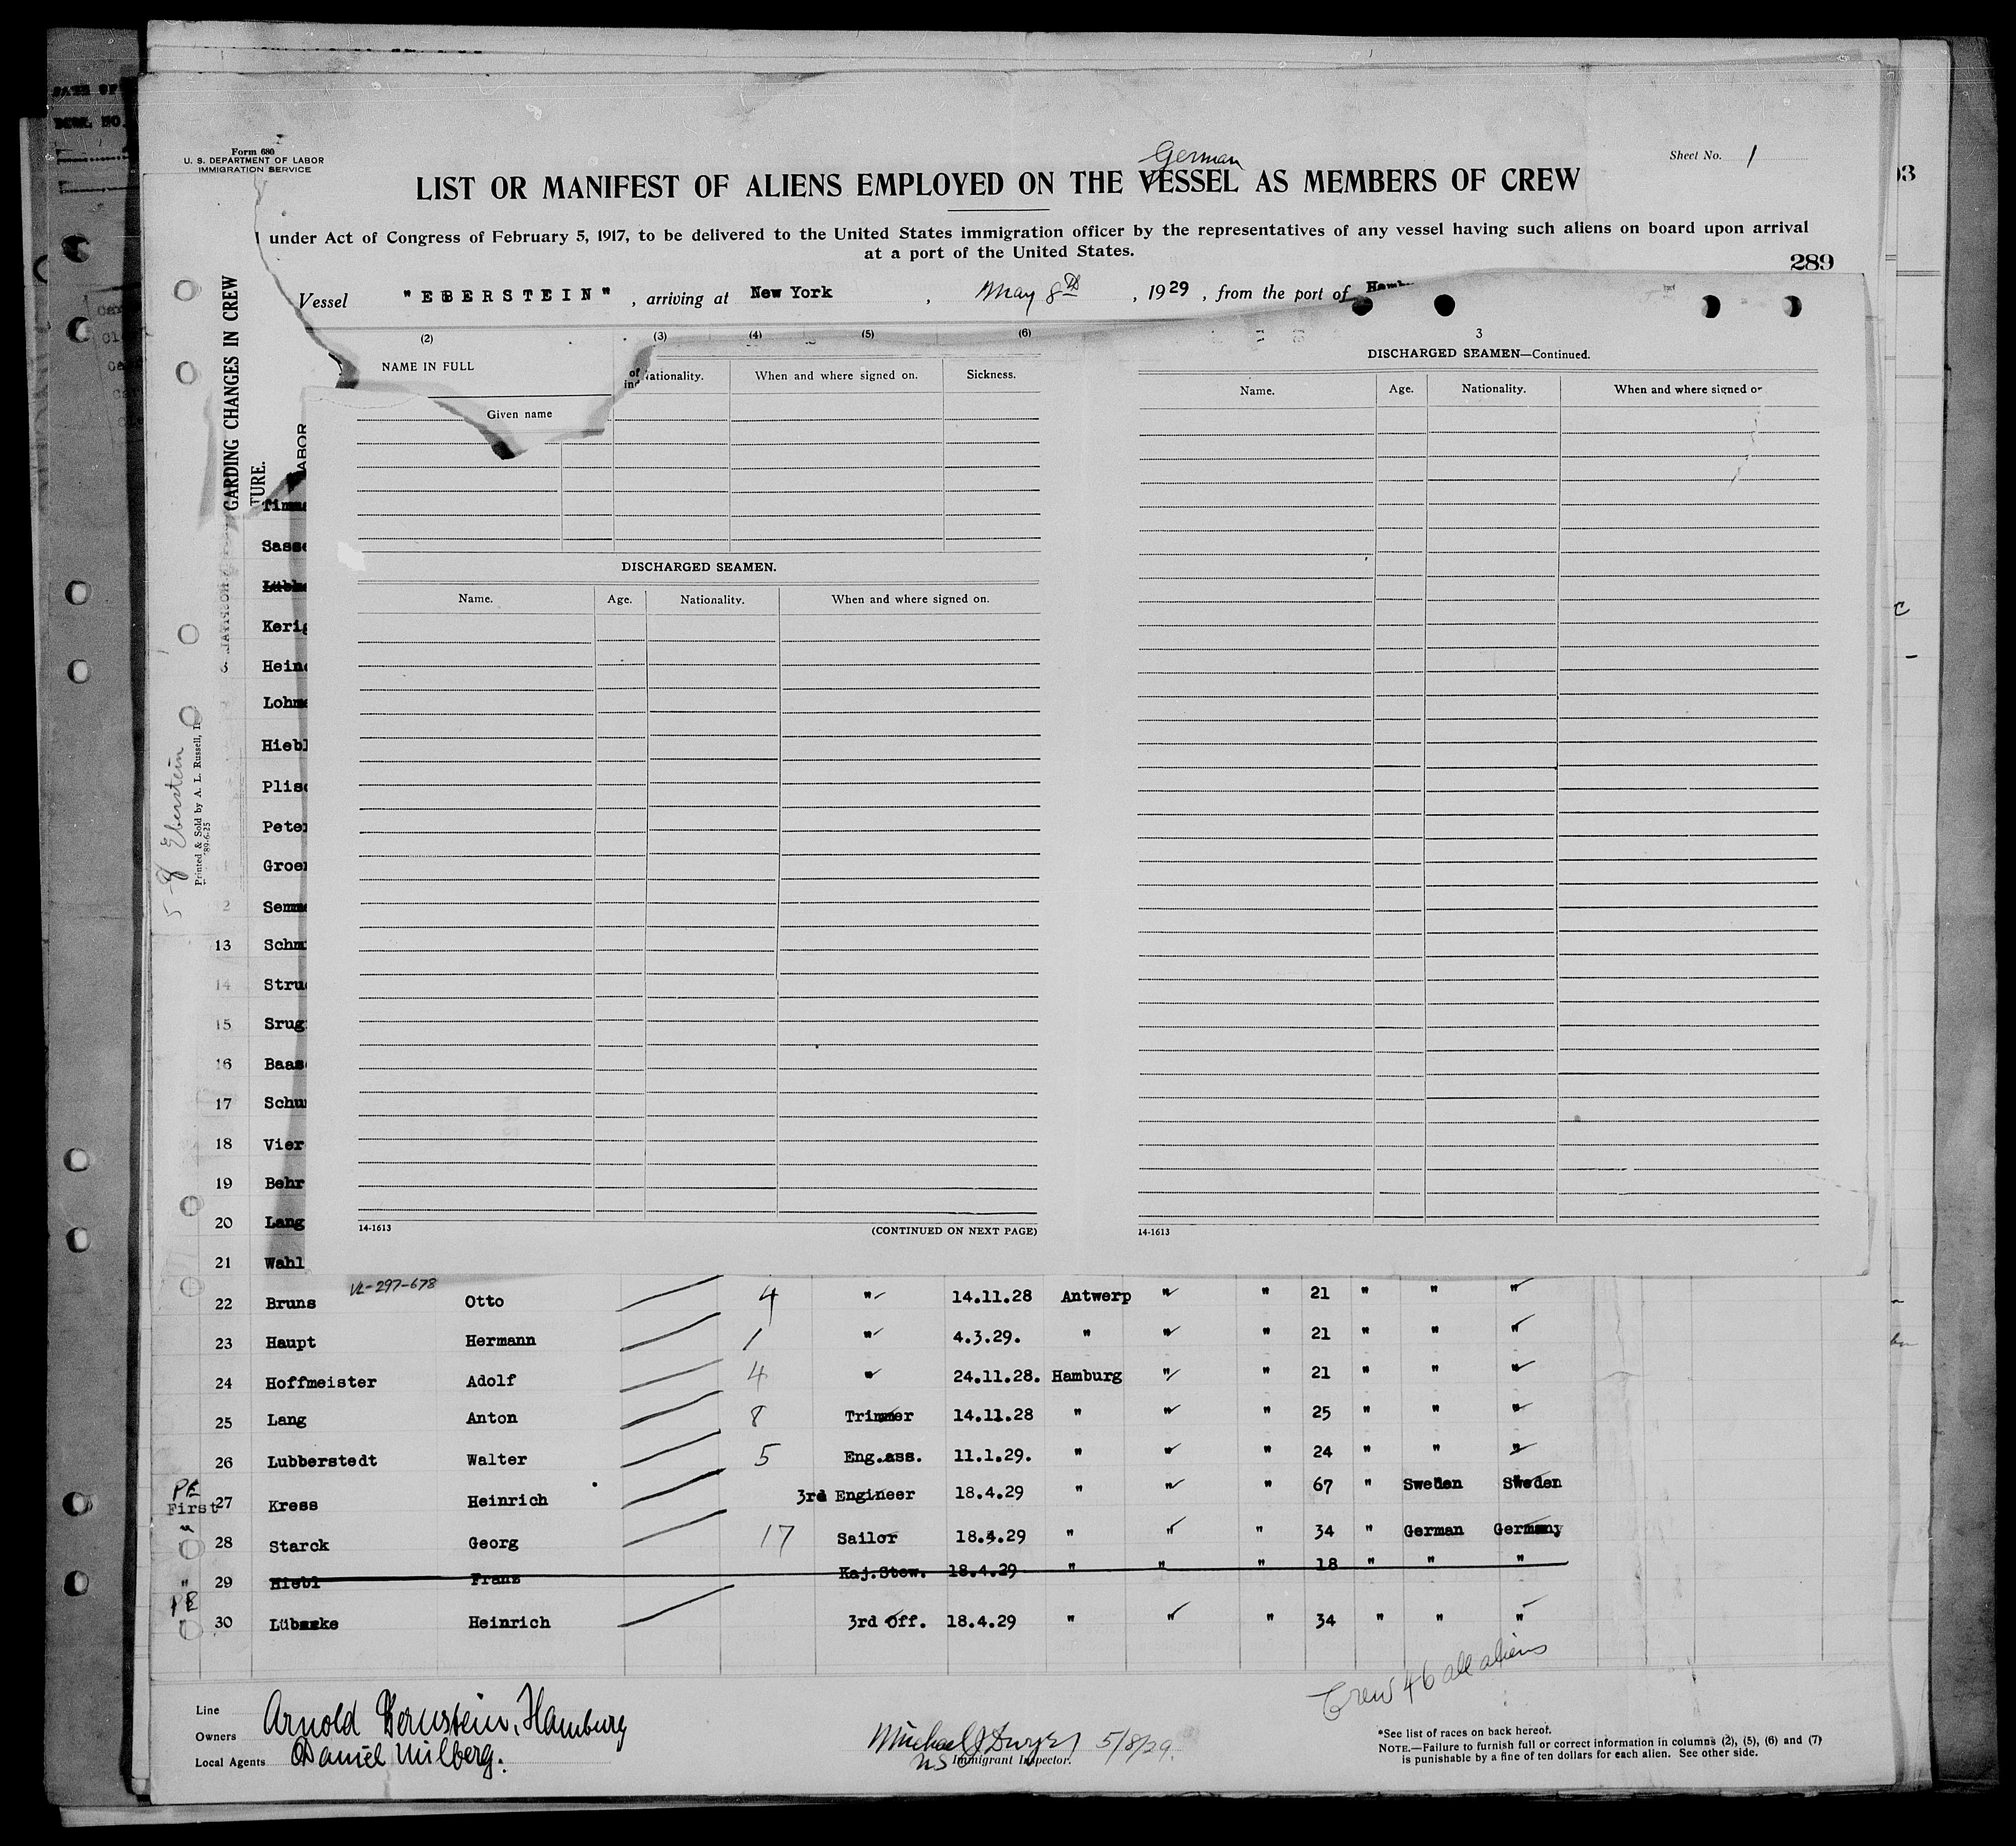 Form 680
U. S. DEPARTMENT OF LABOR
IMMIGRATION SERVICE
Sheet No. 1
German
LIST OR MANIFEST OF ALIENS EMPLOYED ON THE VESSEL AS MEMBERS OF CREW
under Act of Congress of February 5, 1917, to be delivered to the United States immigration officer by the representatives of any vessel having such aliens on board upon arrival
at a port of the United States.
289
Vessel "EBERSTEIN", arriving at New York, May 8th, 1929, from the port of
GARDING CHANGES IN CREW
TURE.
(2) (3) (4) (5) (6)
NAME IN FULL
Given name
Nationality. When and where signed on. Sickness.
DISCHARGED SEAMEN.
Name. Age. Nationality. When and where signed on.
14-1613 (CONTINUED ON NEXT PAGE)
3
DISCHARGED SEAMEN—Continued.
Name. Age. Nationality. When and where signed o
14-1613
Timm
Sass
Kerig
Hein
Lohm
Hiebl
Plis
Pete
Groe
Semm
13 Schm
14 Stru
15 Srug
16 Baas
17 Schu
18 Vier
19 Behr
20 Lang
21 Wahl
VL-297-678
22 Bruns Otto 4 " 14.11.28 Antwerp " " 21 " " "
23 Haupt Hermann 1 " 4.3.29. " " " 21 " " "
24 Hoffmeister Adolf 4 " 24.11.28. Hamburg " " 21 " " "
25 Lang Anton 8 Trimmer 14.11.28 " " " 25 " " "
26 Lubberstedt Walter 5 Eng.ass. 11.1.29. " " " 24 " " "
PE
First 27 Kress Heinrich 3rd Engineer 18.4.29 " " " 67 " Sweden Sweden
" 28 Starck Georg 17 Sailor 18.4.29 " " " 34 " German Germany
" 29 Hiebl Franz Kaj.Stew. 18.4.29 " " " 18 " " "
PE
" 30 Lübmke Heinrich 3rd Off. 18.4.29 " " " 34 " " "
Crew 46 all aliens
5-8 Eberstein
Printed & Sold by A. L. Russell, I
Line
Owners Arnold Bernstein, Hamburg
Local Agents Daniel Milberg.
Michael J Dwyer 5/8/29.
US Immigrant Inspector.
*See list of races on back hereof.
NOTE.—Failure to furnish full or correct information in columns (2), (5), (6) and (7)
is punishable by a fine of ten dollars for each alien. See other side.